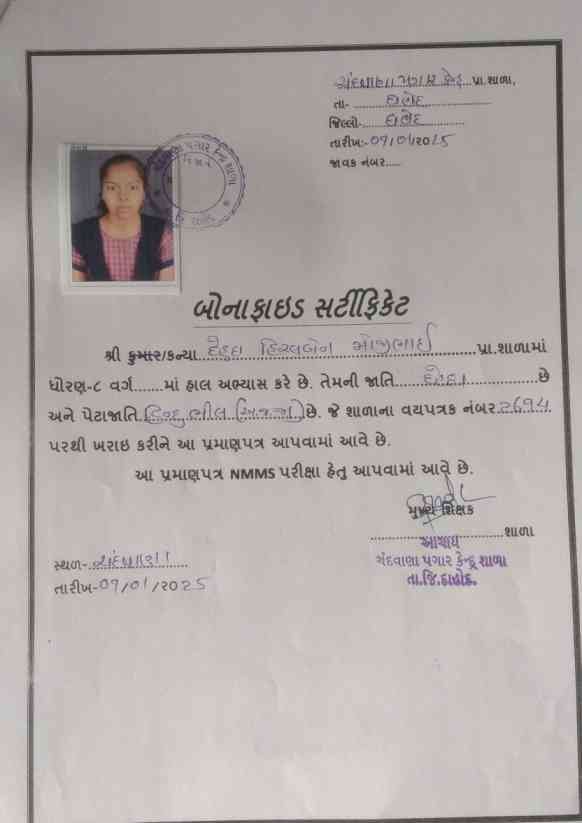 ચંદવાણા પગાર કેન્દ્ર પ્રા.શાળા,
તા- દાહોદ
જિલ્લો- દાહોદ
તારીખ:- 07/01/2025
જાવક નંબર.....
બોનાફાઇડ સર્ટીફિકેટ
શ્રી કુમાર/કન્યા દેહદા હિરલબેન પ્રા.શાળામાં
ધોરણ-૮ વર્ગ......માં હાલ અભ્યાસ કરે છે. તેમની જાતિ છે
અને પેટાજાતિ હિન્દુ ભીલ છે. જે શાળાના વયપત્રક નંબર
પરથી ખરાઇ કરીને આ પ્રમાણપત્ર આપવામાં આવે છે.
આ પ્રમાણપત્ર NMMS પરીક્ષા હેતુ આપવામાં આવે છે.
મુખ્ય શિક્ષક
શાળા
આચાર્ય
ચંદવાણા પગાર કેન્દ્ર શાળા
તા.જિ.દાહોદ.
સ્થળ- ચંદવાણા
તારીખ-07/01/2025